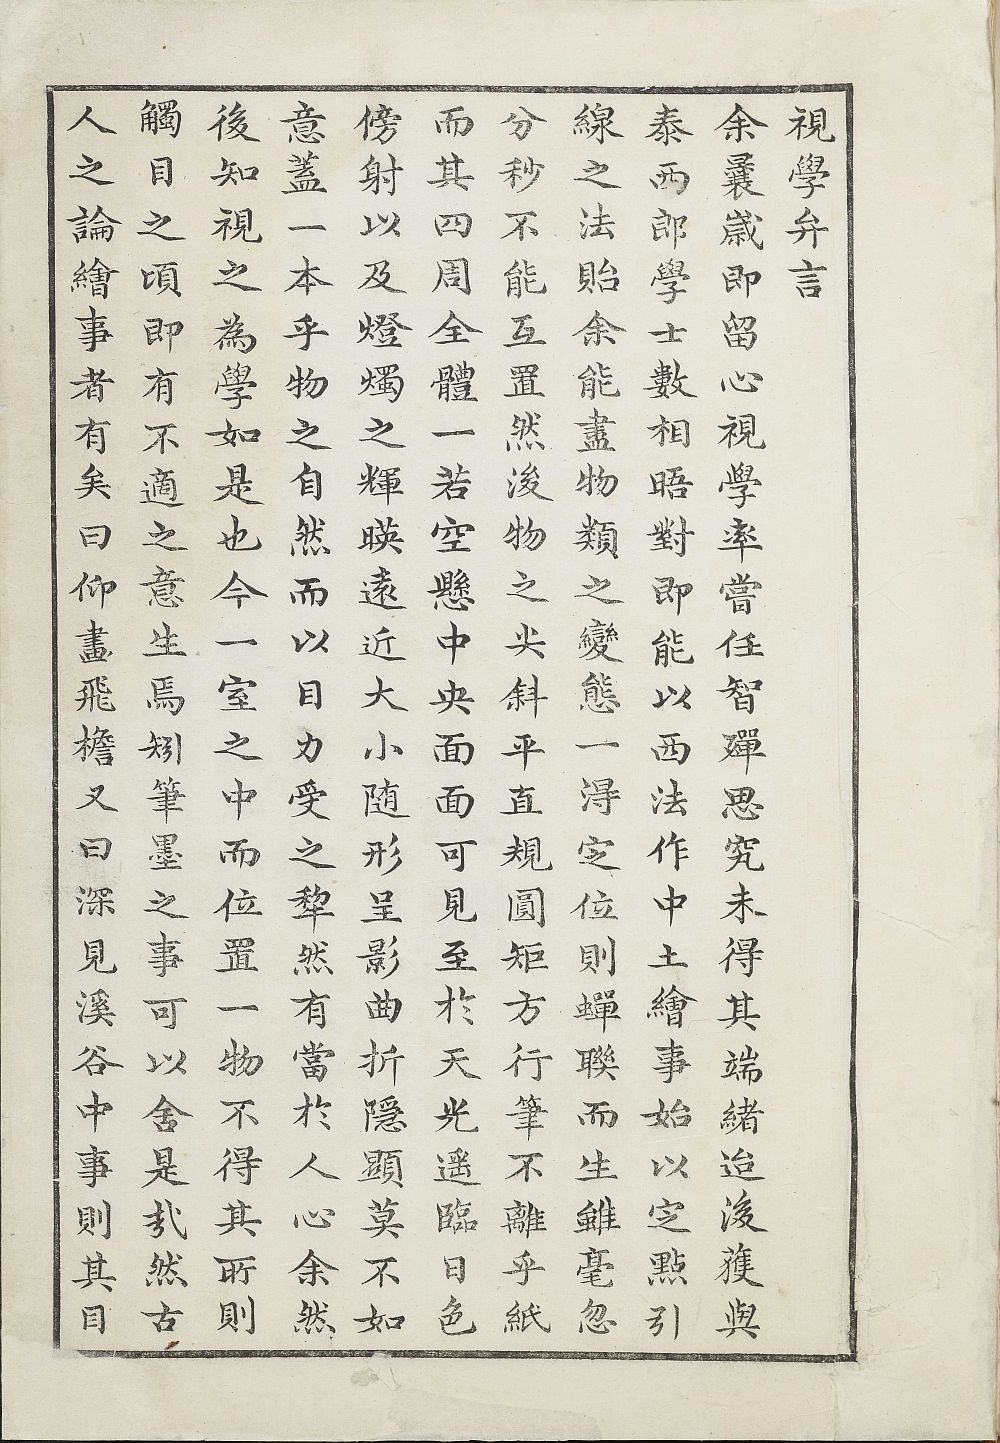 視學弁言
余曩歲即留心視學率嘗任智殫思究未得其端緒迨後獲與
泰西郎學士數相晤對即能以西法作中土繪事始以定點引
線之法貽余能盡物類之變態一得定位則蟬聯而生雖毫忽
分秒不能互置然後物之尖斜平直規圓矩方行筆不離乎紙
而其四周全體一若空懸中央面面可見至於天光遥臨日色
傍射以及燈燭之輝暎遠近大小随形呈影曲折隱顯莫不如
意葢一本乎物之自然而以目力受之犂然有當於人心余然
後知視之為學如是也今一室之中而位置一物不得其所則
觸目之頃即有不適之意生焉矧筆墨之事可以舍是㢤然古
人之論繪事者有矣曰仰畫飛檐又曰深見溪谷中事則其目